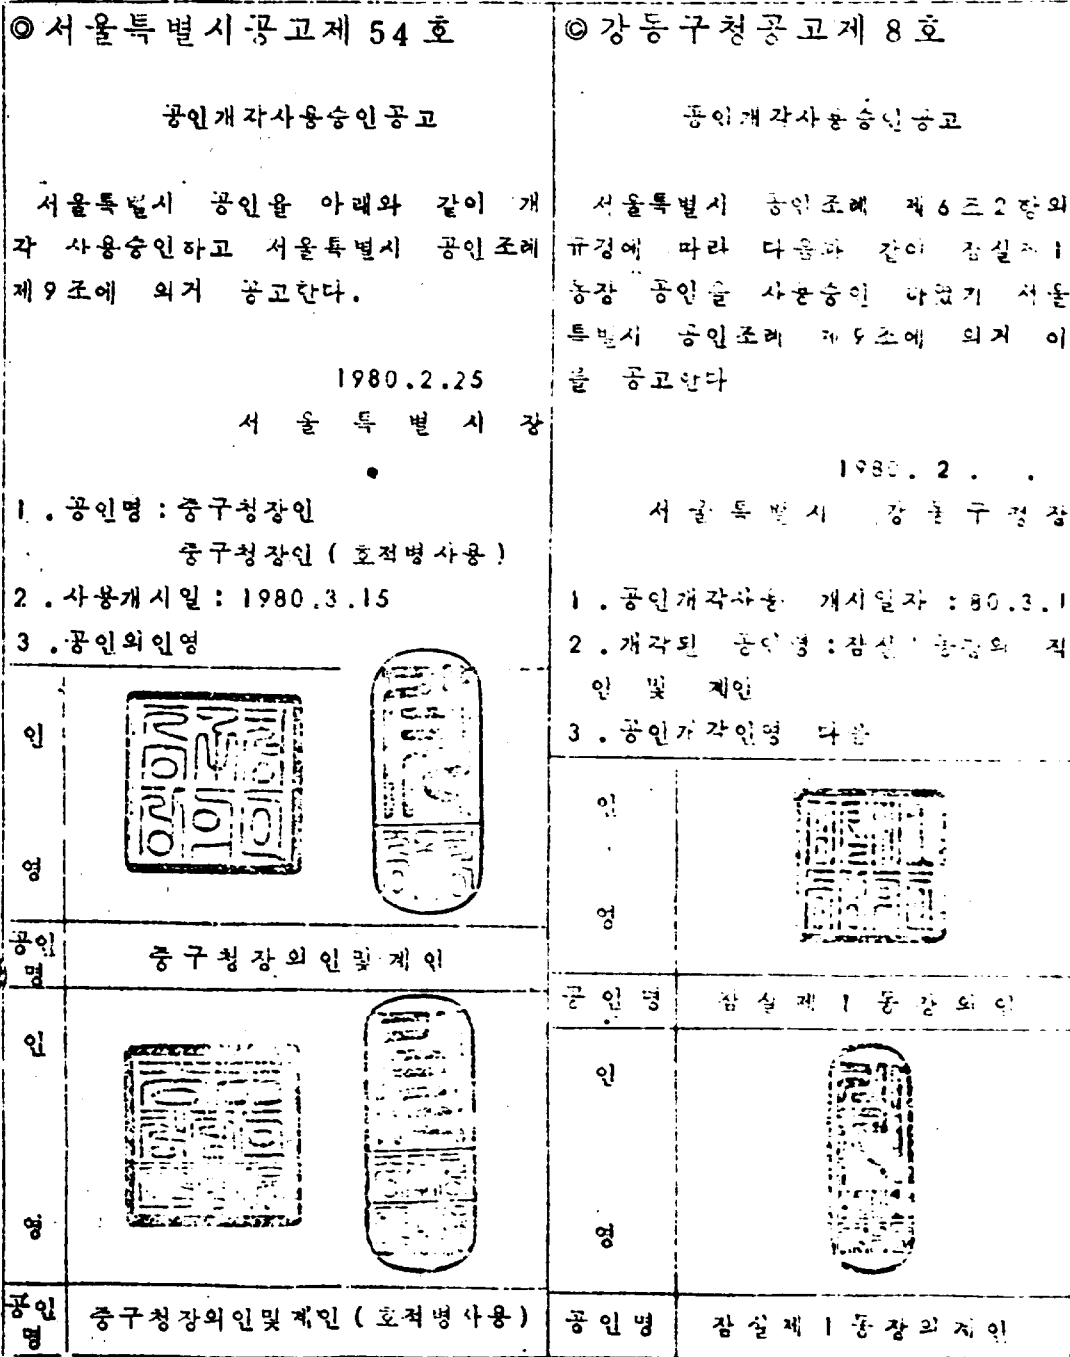 ◎서울특별시공고제 54 호
공인개각사용승인공고
서울특별시 공인을 아래와 같이 개
각 사용승인하고 서울특별시 공인조례
제9조에 의거 공고한다.
1980.2.25
서 울 특 별 시 장
1 . 공인명 : 중구청장인
중구청장인 ( 호적병사용 )
2 . 사용개시일 : 1980.3.15
3 . 공인의인영
인
영
공인
명
중구청장의인및계인
인
영
공인
명
중구청장의인및계인 ( 호적병사용 )
◎강동구청공고제 8 호
공인개각사용승인공고
서울특별시 공인조례 제6조2항의
규정에 따라 다음과 같이 잠실제1
동장 공인을 사용승인 하였기 서울
특별시 공인조례 제9조에 의거 이
를 공고한다
1980. 2 . .
서 울 특 별 시 강 동 구 청 장
1 . 공인개각사용 개시일자 : 80.3.1
2 . 개각된 공인명 : 잠실 동장의 직
인 및 계인
3 . 공인개각인영 다음
인
영
공 인 명
잠 실 제 1 동 장 의 인
인
영
공 인 명
잠 실 제 1 동 장 의 계 인